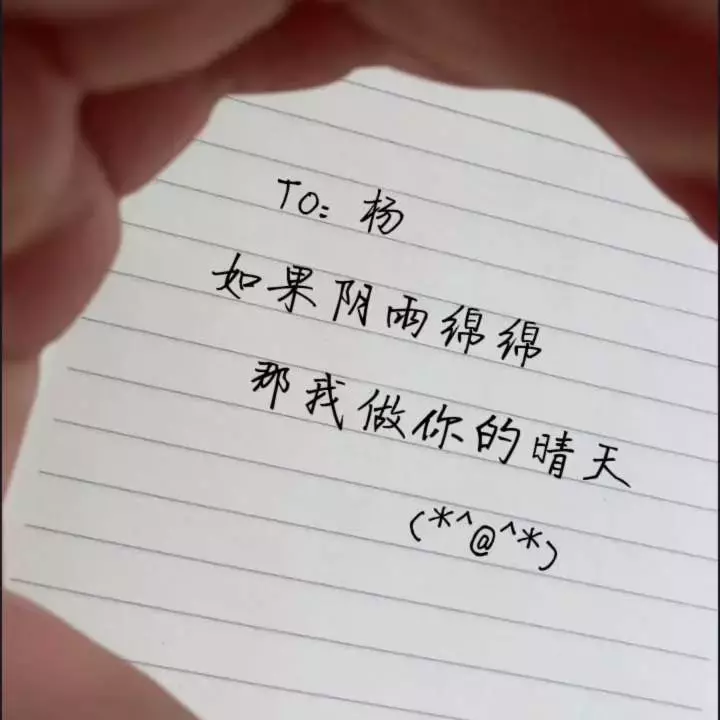 TO: 杨
如果阴雨绵绵
那我做你的晴天
(*^@^*)